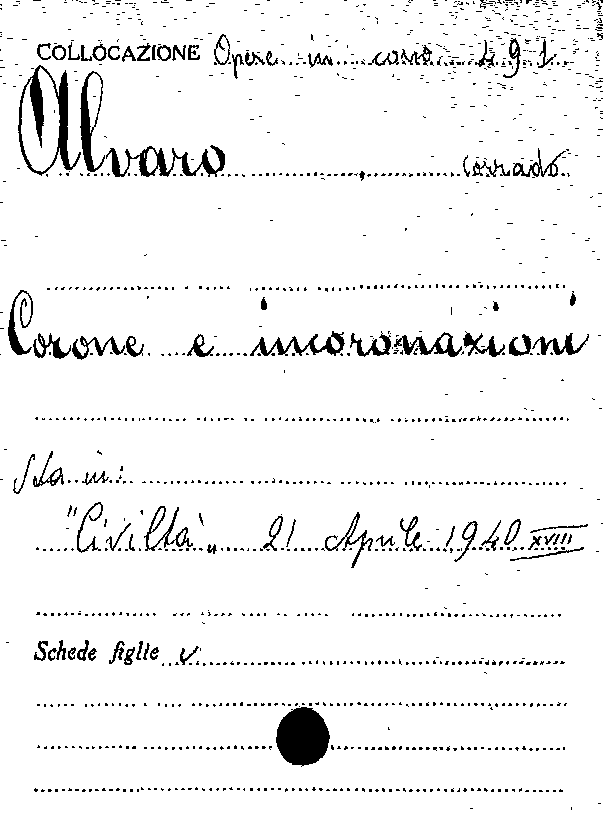 COLLOCAZIONE Opere in corso 491
Alvaro, Corrado
Corone e incoronazioni
Sta in:
"Civiltà„ 21 Aprile 1940 XVIII
Schede figlie v